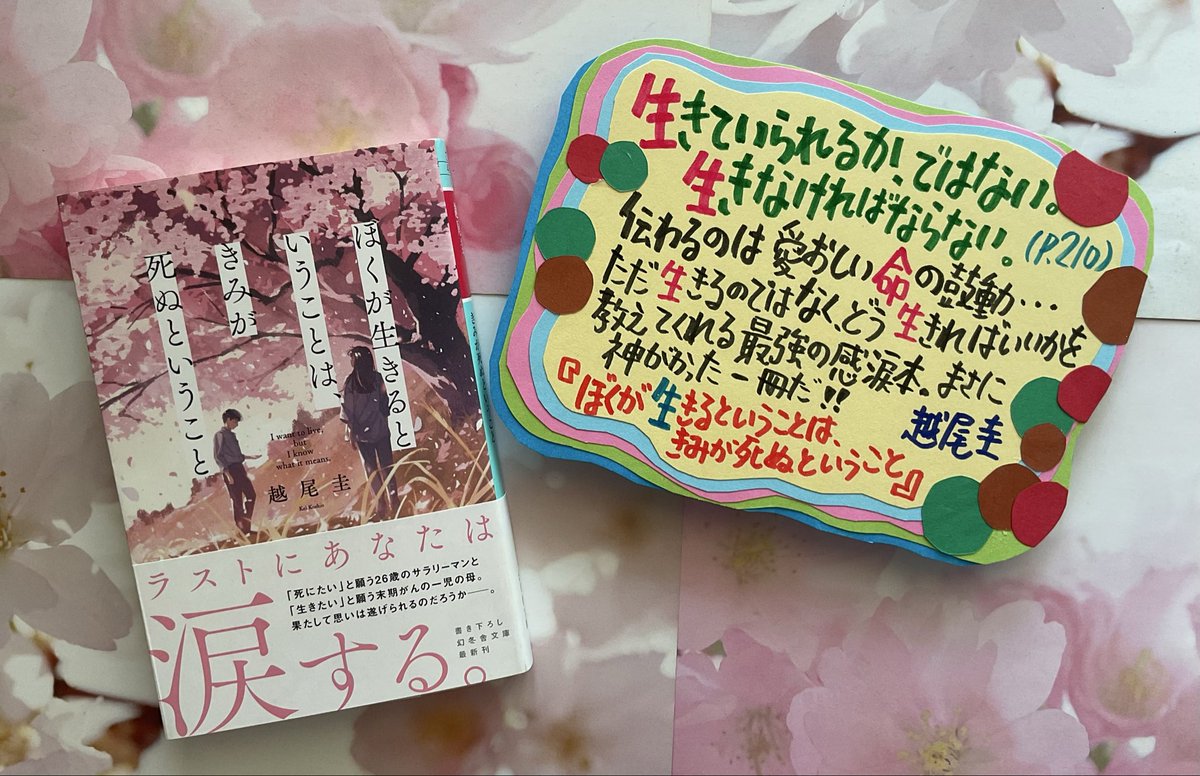 ぼくが生きると
いうことは、
きみが
死ぬということ
I want to live,
but
I know
what it means.
越尾圭
Kei Koshio
ラストにあなたは
「死にたい」と願う26歳のサラリーマンと
「生きたい」と願う末期がんの一児の母。
果たして思いは遂げられるのだろうか――。
涙する。
書き下ろし
幻冬舎文庫
最新刊
生きていられるか、ではない。
生きなければならない。(P.210)
伝わるのは愛おしい命の鼓動…
ただ生きるのではなく、どう生きればいいかを
教えてくれる最強の感涙本。まさに
神がかった一冊だ!!
越尾圭
『ぼくが生きるということは、
きみが死ぬということ』